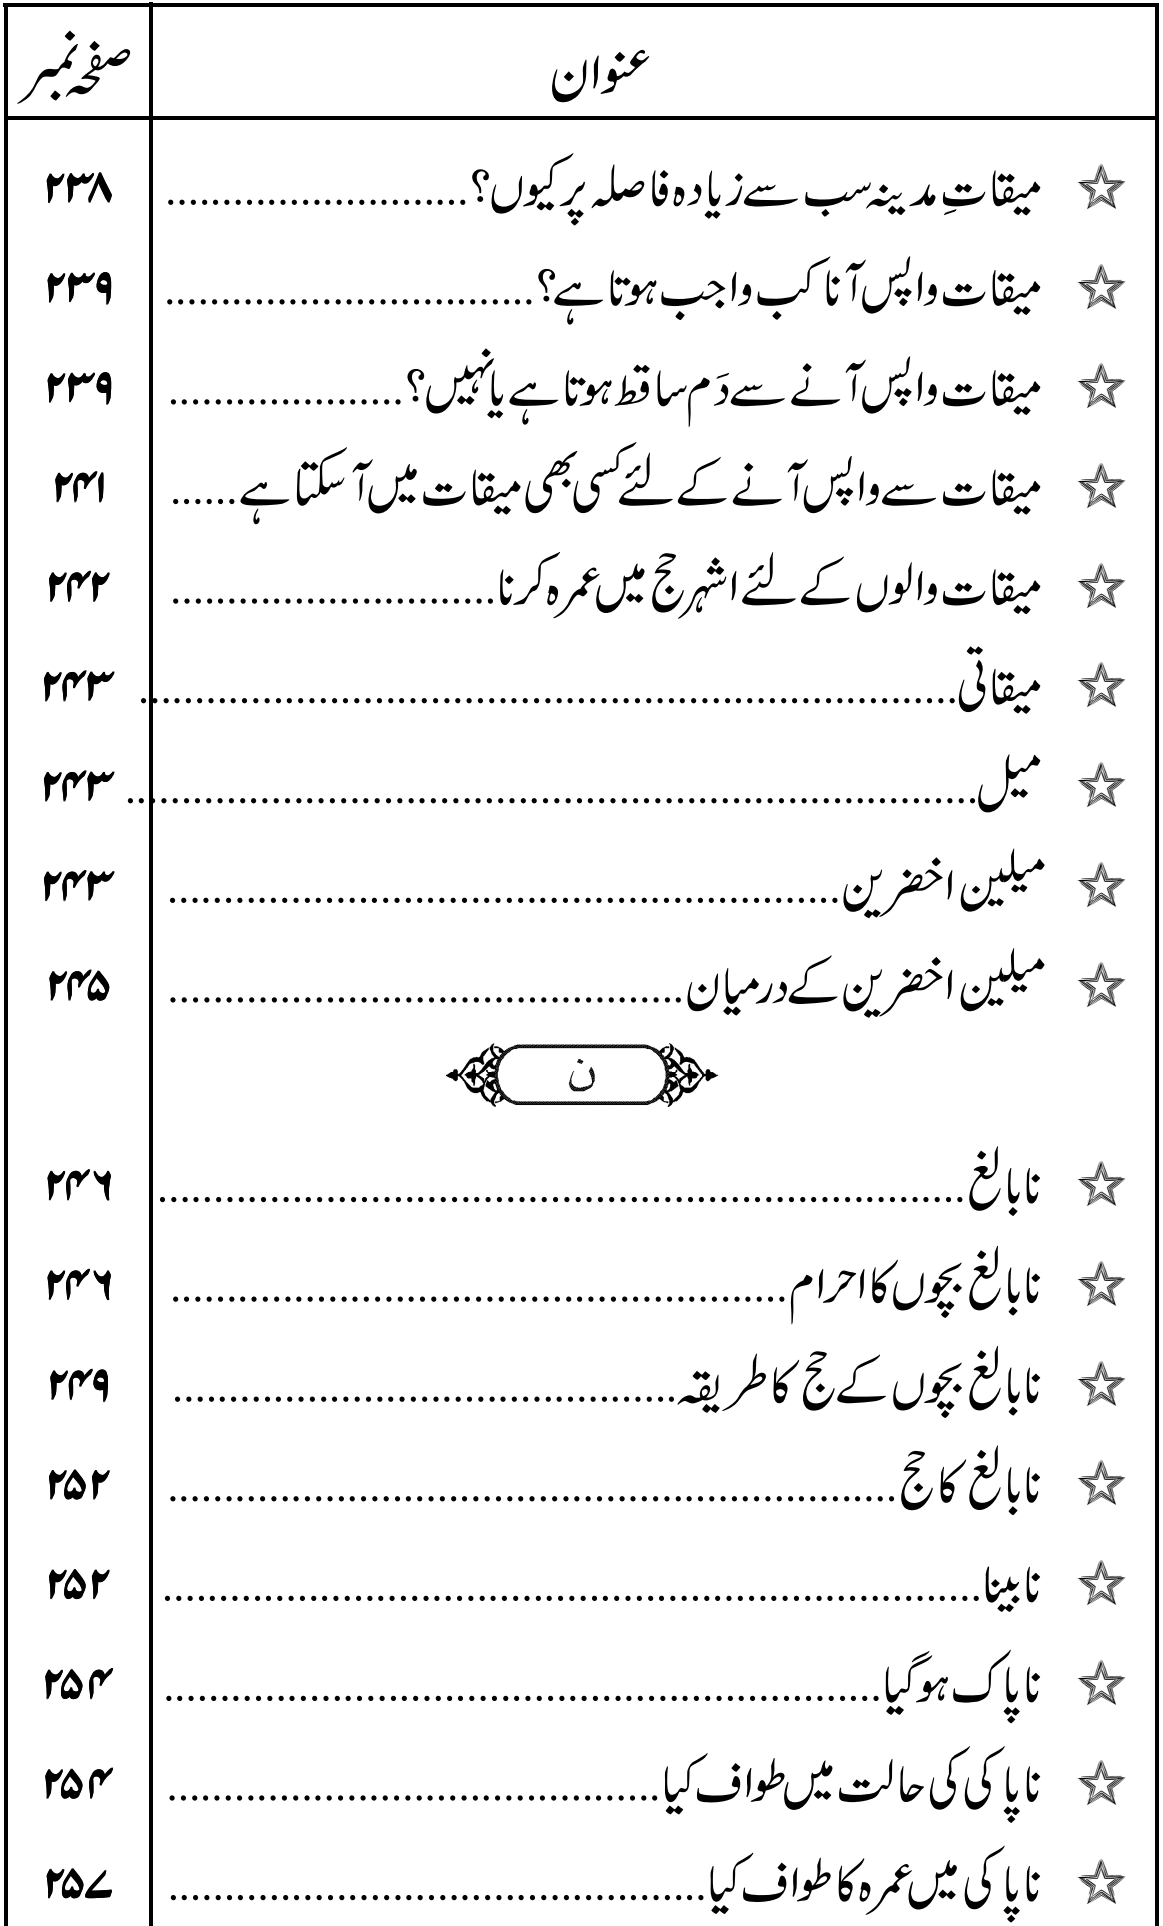 عنوان صفحہ نمبر
☆ میقاتِ مدینہ سب سے زیادہ فاصلہ پر کیوں؟........................... ۲۳۸
☆ میقات واپس آنا کب واجب ہوتا ہے؟................................. ۲۳۹
☆ میقات واپس آنے سے دَم ساقط ہوتا ہے یا نہیں؟..................... ۲۳۹
☆ میقات سے واپس آنے کے لئے کسی بھی میقات میں آسکتا ہے...... ۲۴۱
☆ میقات والوں کے لئے اشہر حج میں عمرہ کرنا............................. ۲۴۲
☆ میقاتی......................................................................... ۲۴۳
☆ میل............................................................................ ۲۴۳
☆ میلین اخضرین............................................................ ۲۴۳
☆ میلین اخضرین کے درمیان.............................................. ۲۴۵
ن
☆ نابالغ........................................................................ ۲۴۶
☆ نابالغ بچوں کا احرام....................................................... ۲۴۶
☆ نابالغ بچوں کے حج کا طریقہ............................................. ۲۴۹
☆ نابالغ کا حج................................................................. ۲۵۲
☆ نابینا......................................................................... ۲۵۲
☆ ناپاک ہوگیا................................................................ ۲۵۴
☆ ناپاکی کی حالت میں طواف کیا............................................ ۲۵۴
☆ ناپاکی میں عمرہ کا طواف کیا................................................ ۲۵۷